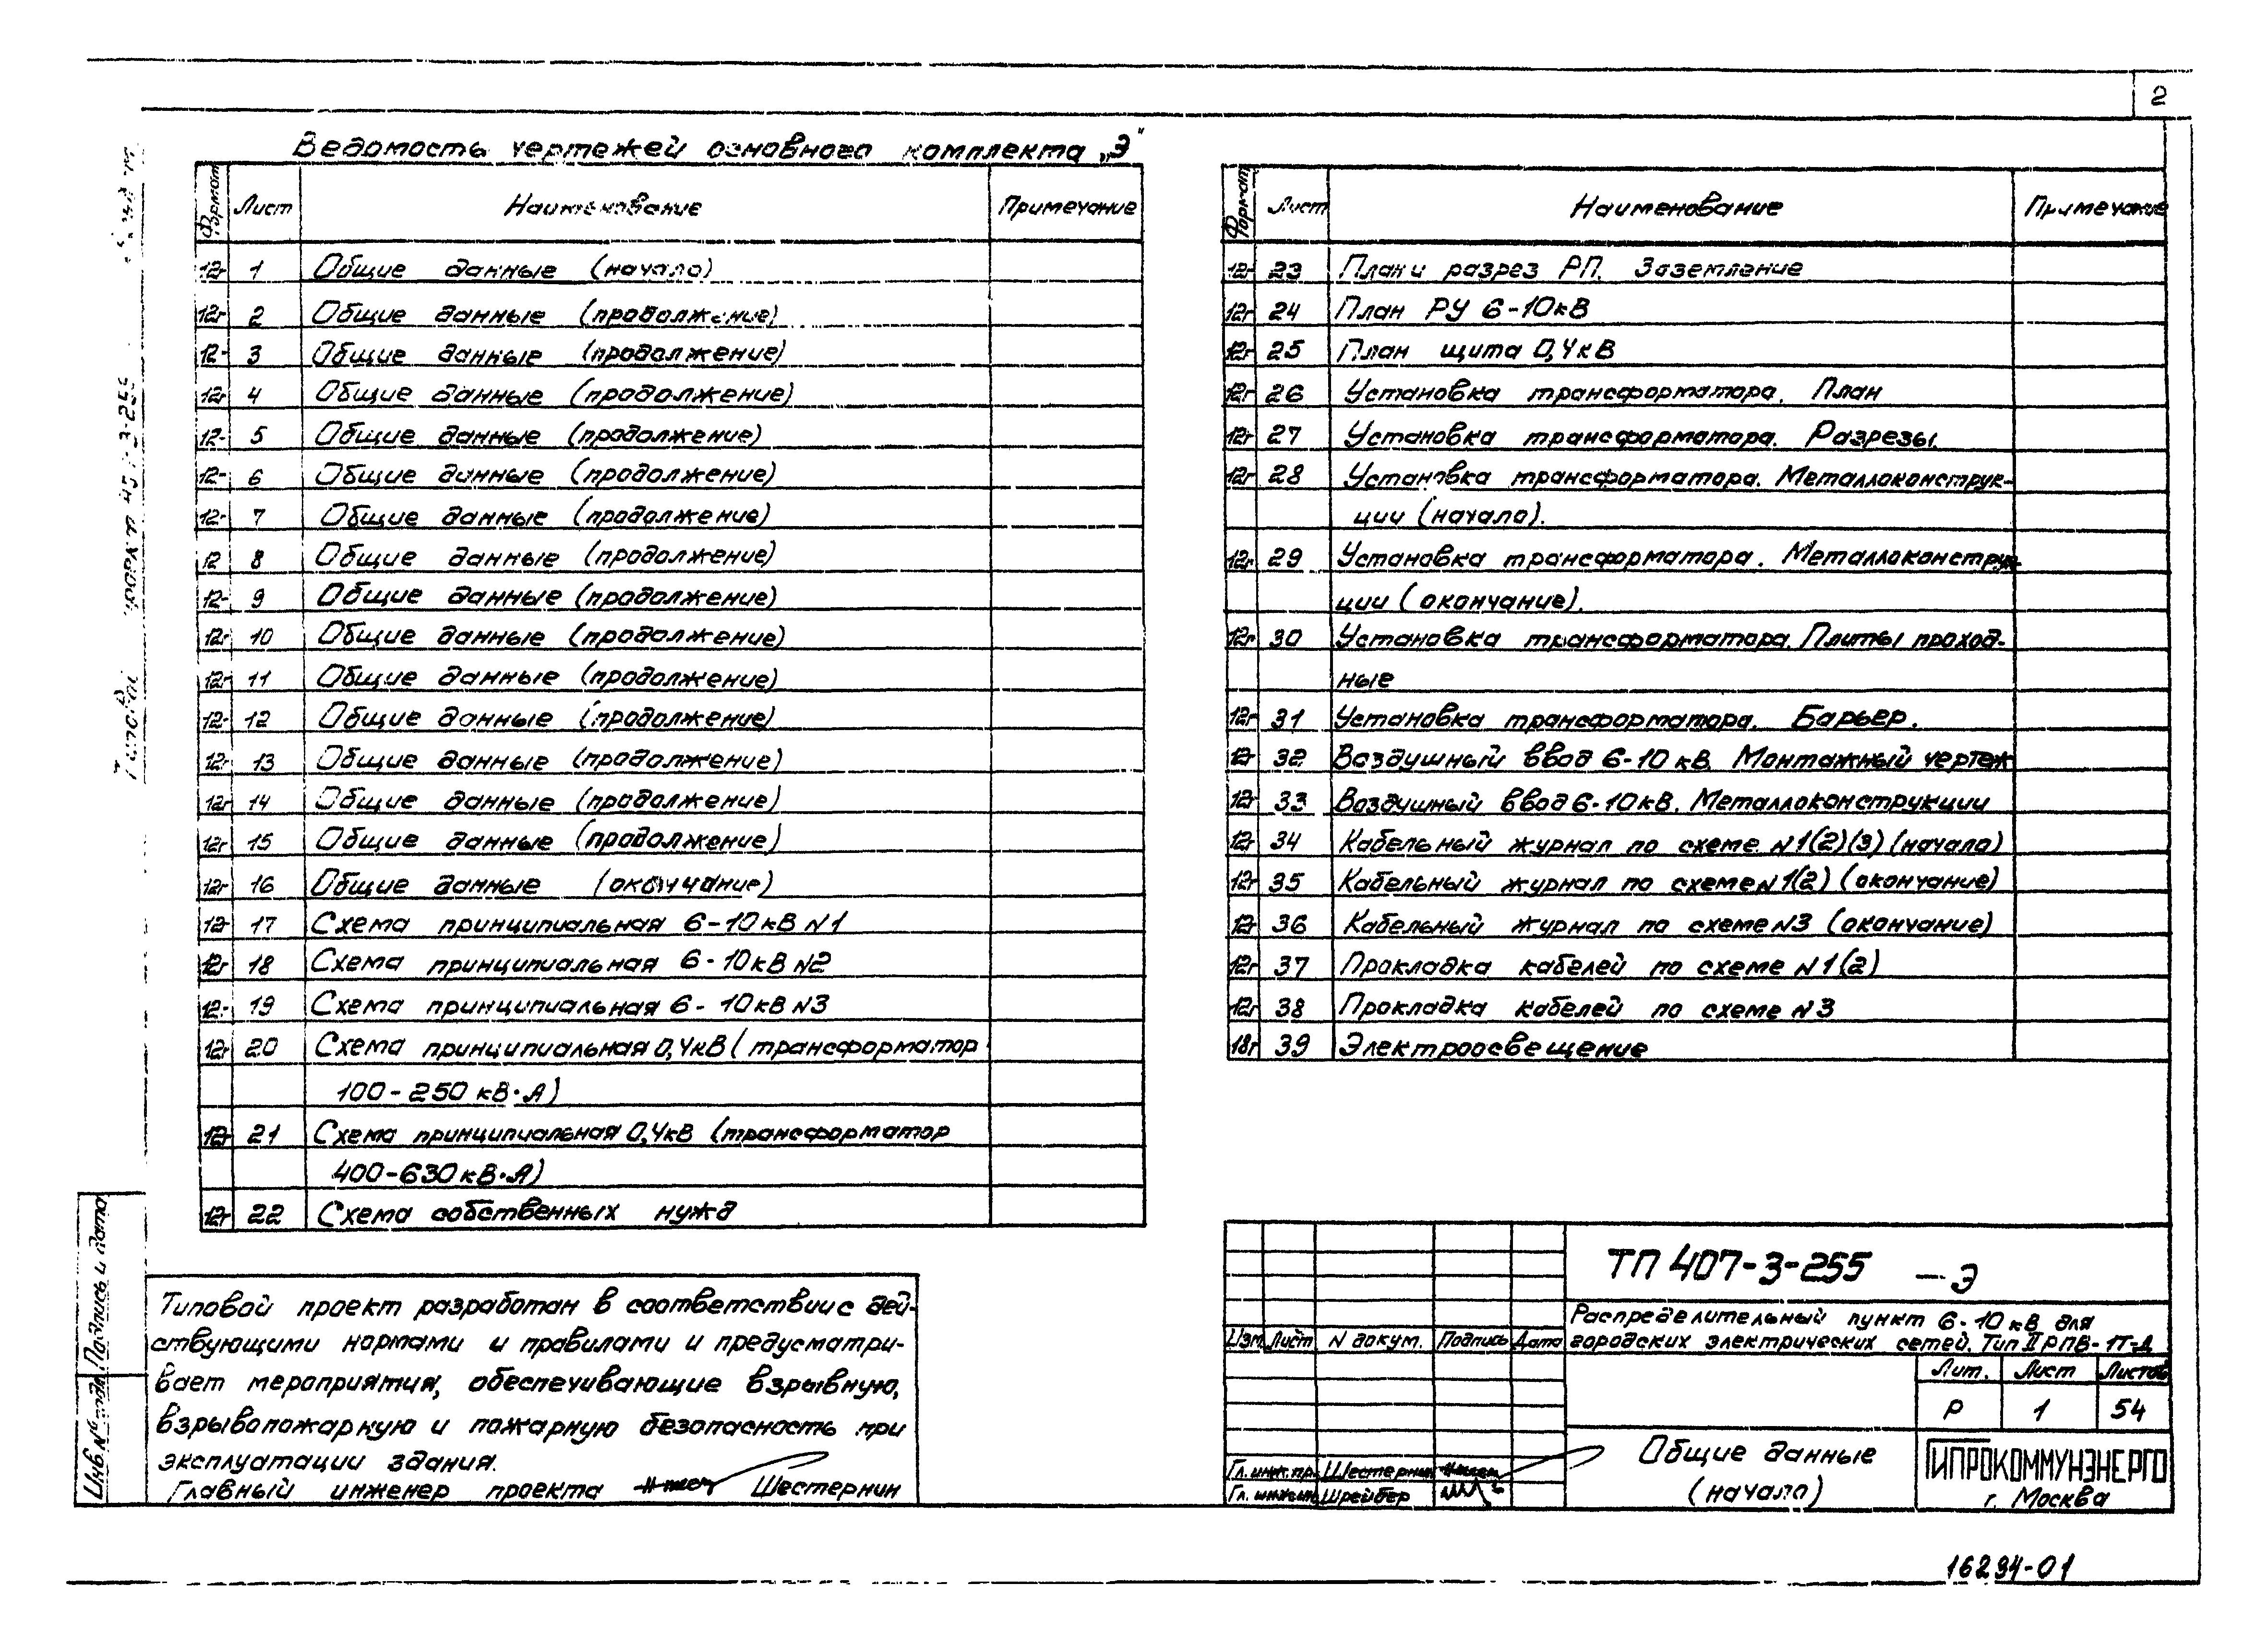 2
Ведомость чертежей основного комплекта „Э"
Формат Лист Наименование Примечание
12г 1 Общие данные (начало)
12г 2 Общие данные (продолжение)
12г 3 Общие данные (продолжение)
12г 4 Общие данные (продолжение)
12г 5 Общие данные (продолжение)
12г 6 Общие данные (продолжение)
12г 7 Общие данные (продолжение)
12 8 Общие данные (продолжение)
12г 9 Общие данные (продолжение)
12г 10 Общие данные (продолжение)
12г 11 Общие данные (продолжение)
12г 12 Общие данные (продолжение)
12г 13 Общие данные (продолжение)
12г 14 Общие данные (продолжение)
12г 15 Общие данные (продолжение)
12г 16 Общие данные (окончание)
12г 17 Схема принципиальная 6-10кВ N1
12г 18 Схема принципиальная 6-10кВ N2
12г 19 Схема принципиальная 6-10кВ N3
12г 20 Схема принципиальная 0,4кВ (трансформатор
100-250 кВ·А)
12г 21 Схема принципиальная 0,4кВ (трансформатор
400-630 кВ·А)
12г 22 Схема собственных нужд
Формат Лист Наименование Примечание
12г 23 План и разрез РП. Заземление
12г 24 План РУ 6-10кВ
12г 25 План щита 0,4кВ
12г 26 Установка трансформатора. План
12г 27 Установка трансформатора. Разрезы.
12г 28 Установка трансформатора. Металлоконструк-
ции (начало).
12г 29 Установка трансформатора. Металлоконструк-
ции (окончание).
12г 30 Установка трансформатора. Плиты проход-
ные
12г 31 Установка трансформатора. Барьер.
12г 32 Воздушный ввод 6-10 кВ. Монтажный чертеж
12г 33 Воздушный ввод 6-10кВ. Металлоконструкции
12г 34 Кабельный журнал по схеме N1(2)(3) (начало)
12г 35 Кабельный журнал по схеме N1(2) (окончание)
12г 36 Кабельный журнал по схеме N3 (окончание)
12г 37 Прокладка кабелей по схеме N1(2)
12г 38 Прокладка кабелей по схеме N3
18г 39 Электроосвещение
Типовой проект разработан в соответствии с дей-
ствующими нормами и правилами и предусматри-
вает мероприятия, обеспечивающие взрывную,
взрывопожарную и пожарную безопасность при
эксплуатации здания.
Главный инженер проекта Шестернин
ТП 407-3-255 -Э
Распределительный пункт 6-10 кВ для
городских электрических сетей. Тип II РПВ-1Т-Д
Изм. Лист N докум. Подпись Дата
Лит. Лист Листов
Р 1 54
Общие данные
(начало)
Гл. инж. пр. Шестернин
Гл. инжен. Шрейбер
ГИПРОКОММУНЭНЕРГО
г. Москва
Типовой проект 407-3-255
Подпись и дата
Инв. № подл.
16294-01